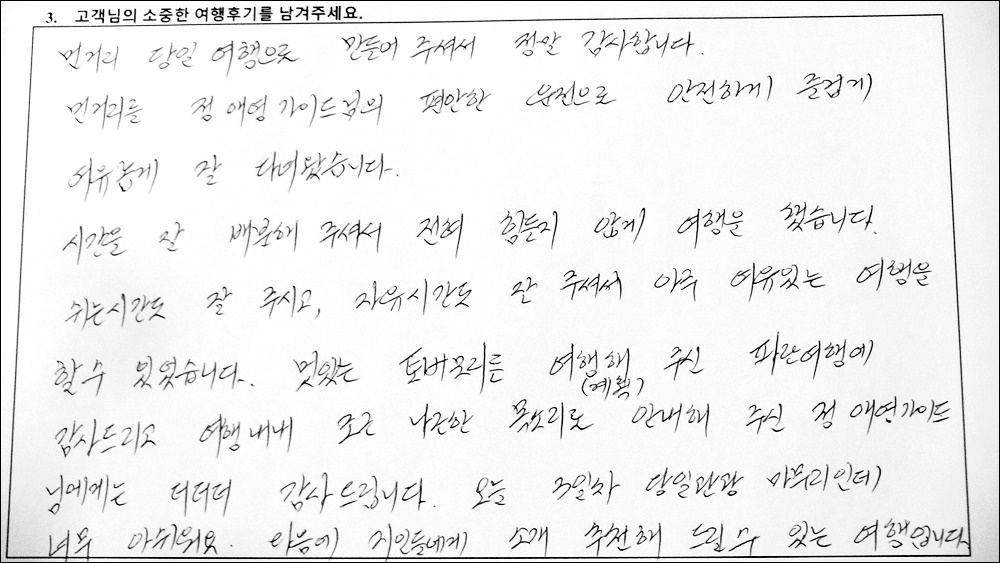 3. 고객님의 소중한 여행후기를 남겨주세요.
먼거리 당일 여행으로 만들어 주셔서 정말 감사합니다.
먼거리를 정 애영 가이드님의 편안한 운전으로 안전하게 즐겁게
여유롭게 잘 다녀왔습니다.
시간을 잘 배분해 주셔서 전혀 힘들지 않게 여행을 했습니다.
쉬는시간도 잘 주시고, 자유시간도 잘 주셔서 아주 여유있는 여행을
할수 있었습니다. 멋있는 토버모리를 여행해 주신 파란여행에
(계획)
감사드리고 여행내내 조근 나근한 목소리로 안내해 주신 정 애연가이드
님에게는 더더더 감사드립니다. 오늘 3일차 당일관광 마무리인데
너무 아쉬워요. 다음에 지인들에게 소개 추천해 드릴수 있는 여행입니다.